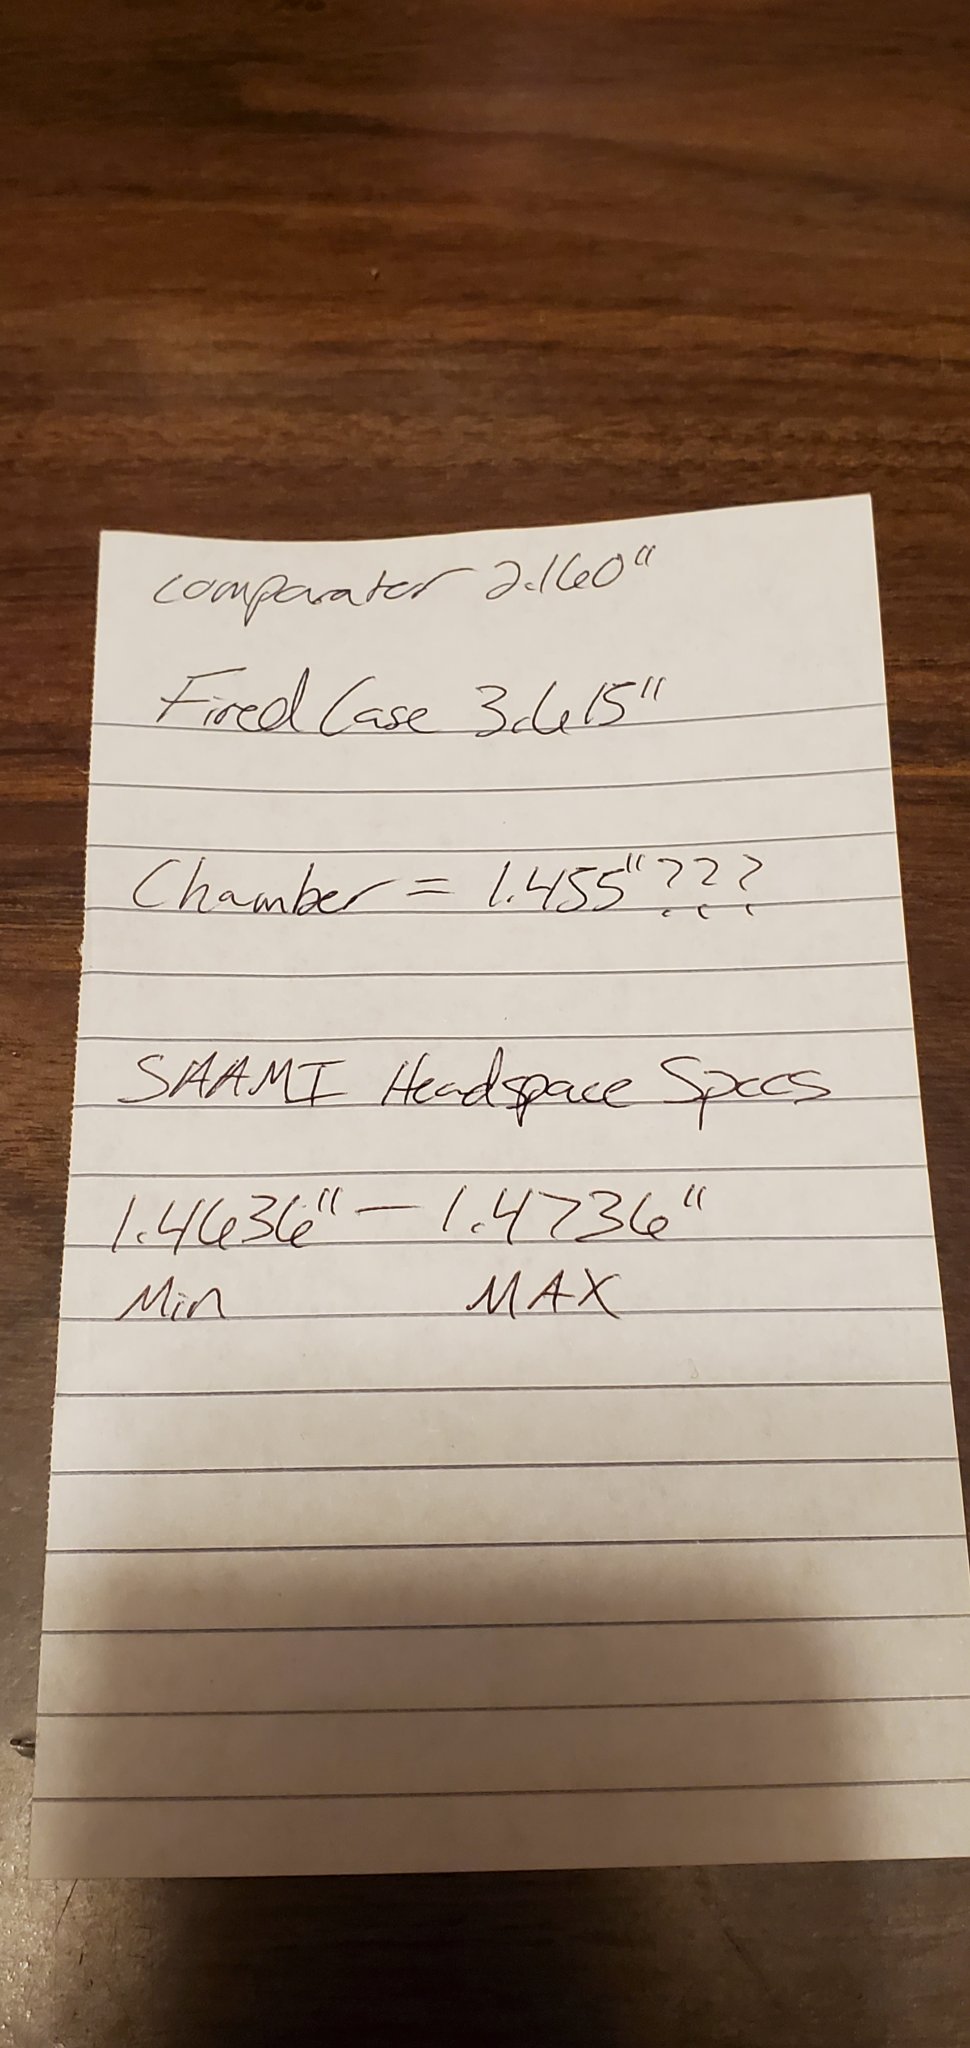 comparator 2.160"
Fired Case 3.615"
Chamber = 1.455"???
SAAMI Headspace Specs
1.4636" — 1.4736"
Min MAX